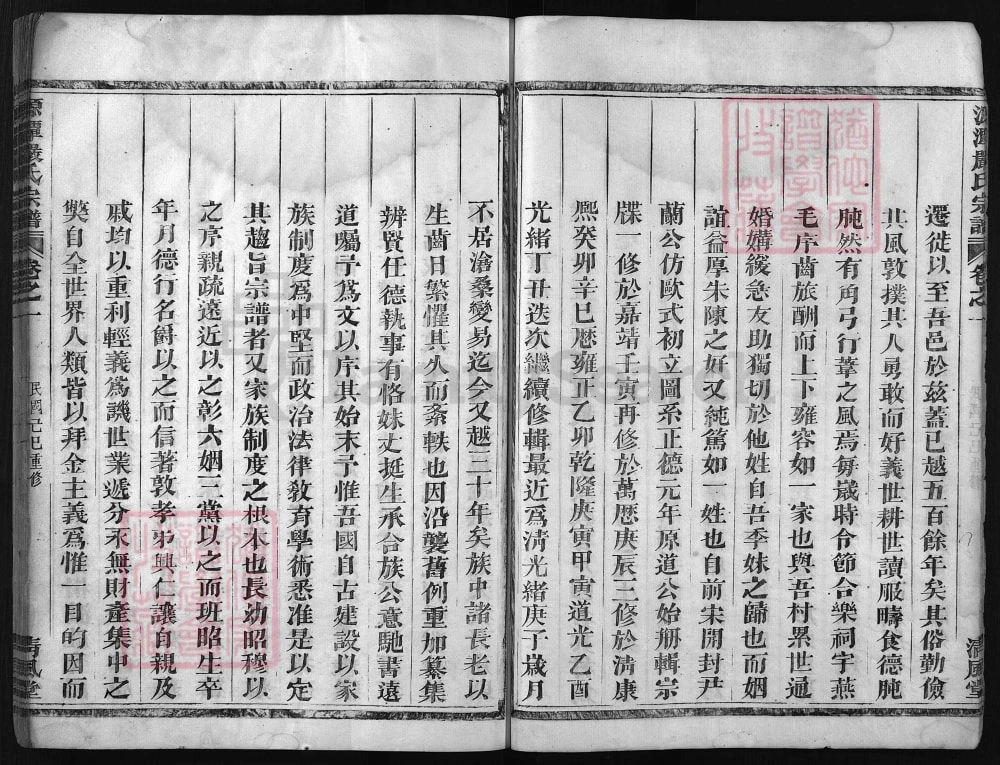 源潭嚴氏宗譜 卷之一 清風堂
遷徙以至吾邑於玆蓋已越五百餘年矣其俗勤儉
其風敦撲其人勇敢而好義世耕世讀服疇食德肫
肫然有角弓行葦之風焉每歲時令節合樂祠宇燕
毛序齒旅酬而上下雍容如一家也與吾村累世通
婚媾緩急友助獨切於他姓自吾季妹之歸也而姻
誼益厚朱陳之好又純篤如一姓也自前宋開封尹
蘭公仿歐式初立圖系正德元年原道公始册輯宗
牒一修於嘉靖壬寅再修於萬歷庚辰三修於淸康
熙癸卯辛巳歷雍正乙卯乾隆庚寅甲寅道光乙酉
光緒丁丑迭次繼續修輯最近爲淸光緒庚子歲月
不居滄桑變易迄今又越三十年矣族中諸長老以
生齒日繁懼其久而紊軼也因沿襲舊例重加纂集
辨賢任德執事有恪妹丈挺生承合族公意馳書遠
道囑予爲文以序其始末予惟吾國自古建設以家
族制度爲中堅而政治法律敎育學術悉准是以定
其趨旨宗譜者又家族制度之根本也長幼昭穆以
之序親疏遠近以之彰六姻三黨以之而班昭生卒
年月德行名爵以之而信著敦孝弟興仁讓自親及
戚均以重利輕義爲譏世業遞分永無財產集中之
獘自全世界人類皆以拜金主義爲惟一目的因而
源潭嚴氏宗譜 卷之一 民國己巳重修 清風堂